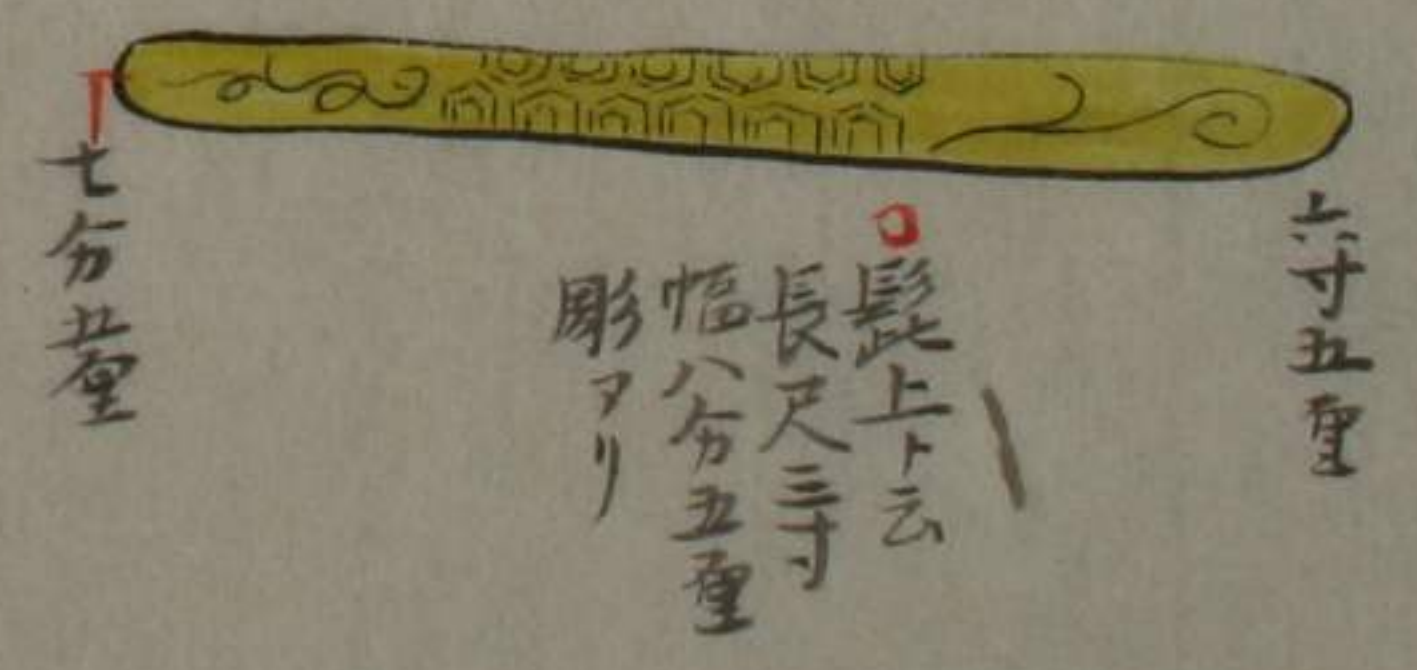 六寸五厘
髭上ト云
長尺三寸
幅八分五厘
彫アリ
七分五厘